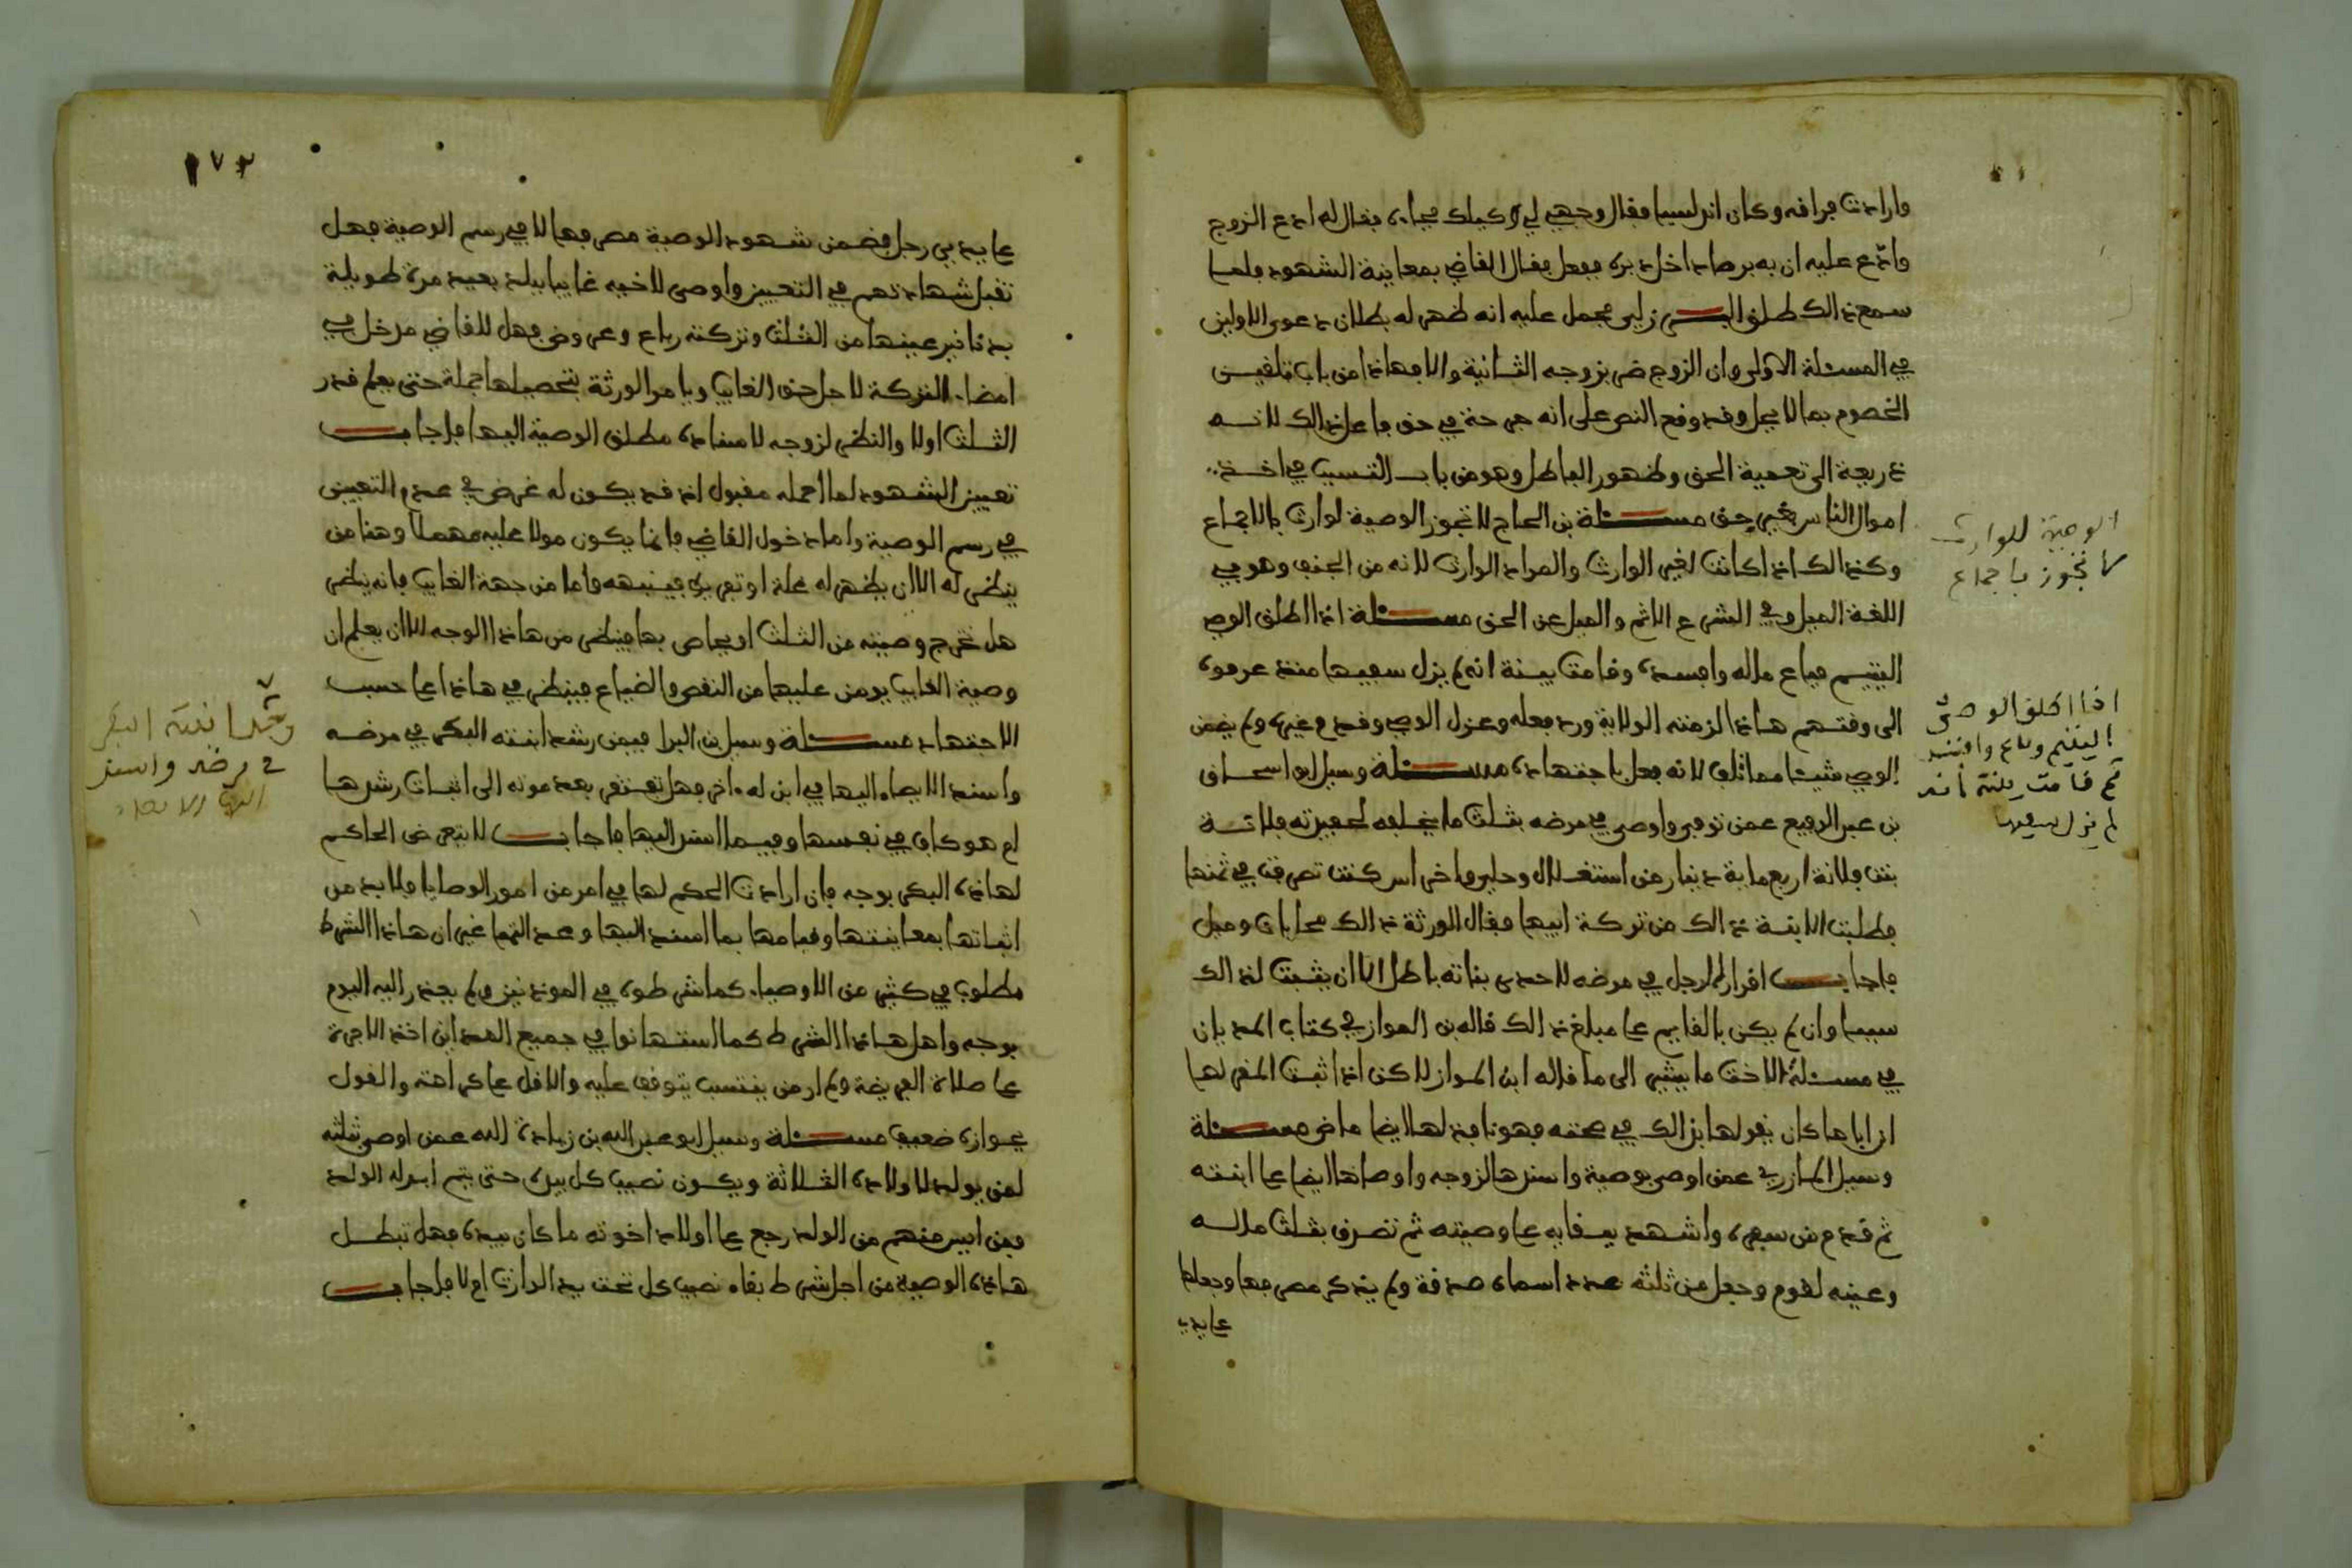 وارادت فراقه وكان اندلسيا فقال وجهي لي وكيلك فجاءه فقال له ادع الزوج
وادع عليه ان به برصا داخل دبره ففعل فقال القاضي بمعاينة الشهود فلما
سمع ذالك طلق البرزلي يحمل عليه انه ظهر له بطلان دعوى الاولين
في المسئلة الاولى وان الزوج ضر بزوجه الثانية والا فهاذا من باب تلقين
الخصوم بما لا يحل وقد وقع النص على انه جرحة في حق فاعل ذالك لانه
ذريعة الى تعمية الحق وظهور الباطل وهو من باب التسبب في اخذ
اموال الناس بغير حق مسئلة بن الحاج لا تجوز الوصية لوارث بالاجماع
وكذالك اذا كانت لغير الوارث والمراد الوارث لانه من الجنف وهو في
اللغة الميل وفي الشرع الاثم والميل عن الحق مسئلة اذا اطلق الوصي
اليتيم فباع ماله وافسده وقامت بينة انه لم يزل سفيها منذ عرفوه
الى وقتهم هاذا لزمته الولاية ورد فعله وعزل الوصي وقدم غيره ولم يضمن
الوصي شيئا مما تلف لانه فعل باجتهاده مسئلة وسيل ابو اسحاق
بن عبد الرفيع عمن توفي واوصى في مرضه بثلث ما يخلفه لحفيدته فلانة
بنت فلانة اربعماية دينار من استغلال وحلي واخر اسر كنت تصرفت في ثمنها
فطلبت الابنة ذالك من تركة ابيها فقال الورثة ذالك محابات وميل
فاجاب اقرار الرجل في مرضه لاحدى بناته باطل الا ان يثبت لذالك
سببا وان لم يكن بالقايم على مبلغ ذالك قاله بن المواز في كتاب المديان
في مسئلة الاخت ما يشير الى ما قاله ابن المواز لاكن اذا ثبت المقر لها
ان اباها كان يقر لها بذالك في صحته فهو نافذ لها ايضا ماض مسئلة
وسيل المازري عمن اوصى بوصية واسندها لزوجه واوصاها ايضا على ابنته
ثم قدم من سفره واشهد ببقايه على وصيته ثم تصرف بثلث ماله
وعينه لقوم وجعل من ثلثه عدد اسماه صدقة ولم يذكر مصرفها وجعلها
على يدي
الوصية للوارث
لا تجوز باجماع
اذا اطلق الوصي
اليتيم وباع وافسد
ثم قامت بينة انه
لم يزل سفيها
١٧٢
على يدي رجل فضمن شهود الوصية مصرفها لا في رسم الوصية فهل
تقبل شهادتهم في التعيين واوصى لاخيه غايبا ببلد بعيد مدة طويلة
بدنانير عينها من الثلث وتركته رباع وعروض فهل للقاضي مدخل في
امضاء التركة لاجل حق الغايب ويامر الورثة بتحصيلها جملة حتى يعلم قدر
الثلث اولا والنظر لزوجه لاسناده مطلق الوصية اليها فاجاب
تعيين الشهود لما اجمله مقبول اذ قد يكون له غرض في عدم التعيين
في رسم الوصية واما دخول القاضي فانما يكون مولا عليه مهملا وهنا من
ينظر له الا ان يظهر له علة او تفريط فينبهه واما من جهة الغايب فانه ينظر
هل تخرج وصيته من الثلث او يحاص بها فينظر من هاذا الوجه الا ان يعلم ان
وصية الغايب يومن عليها من النقص والضياع فينظر في هاذا على حسب
الاجتهاد مسئلة وسيل بن البرا فيمن رشد ابنته البكر في مرضه
واسند الايصاء اليها في ابن له ءاخر فهل تفتقر بعد موته الى اثبات رشدها
ام هو كاف في نفسها وفيما اسند اليها فاجاب لا يتعرض الحاكم
لهاذه البكر بوجه فان ارادت الحكم لها في امر من امور الوصايا فلا بد من
اثباتها بمعاينتها وقيامها بما اسند اليها وعدالتها غير ان هاذا الشرط
مطلوب في كثير من الاوصياء كما شرطوه في الموذنين ولم يجنر اليه اليوم
بوجه واهل هاذا الشرط كما استهانوا في جميع المدابن اخذ الاجرة
على صلاة الفريضة ولم ار من ينتسب يتوقف عليه والاقل على كراهته والقول
بجوازه ضعيف مسئلة وسيل ابو عبد الله بن زيادة الله عمن اوصى بثلثه
لمن يولد لاولاده الثلاثة ويكون نصيب كل بيده حتى يتم ابوله الولد
ومن ايس منهم من الولد رجع على اولاد اخوته ما كان بيده فهل تبطل
هاذه الوصية من اجل شرط بقاء نصيب كل تحت يد الوارث ام لا فاجاب
رشد ابنته البكر
في مرضه واسند
اليها الايصاء